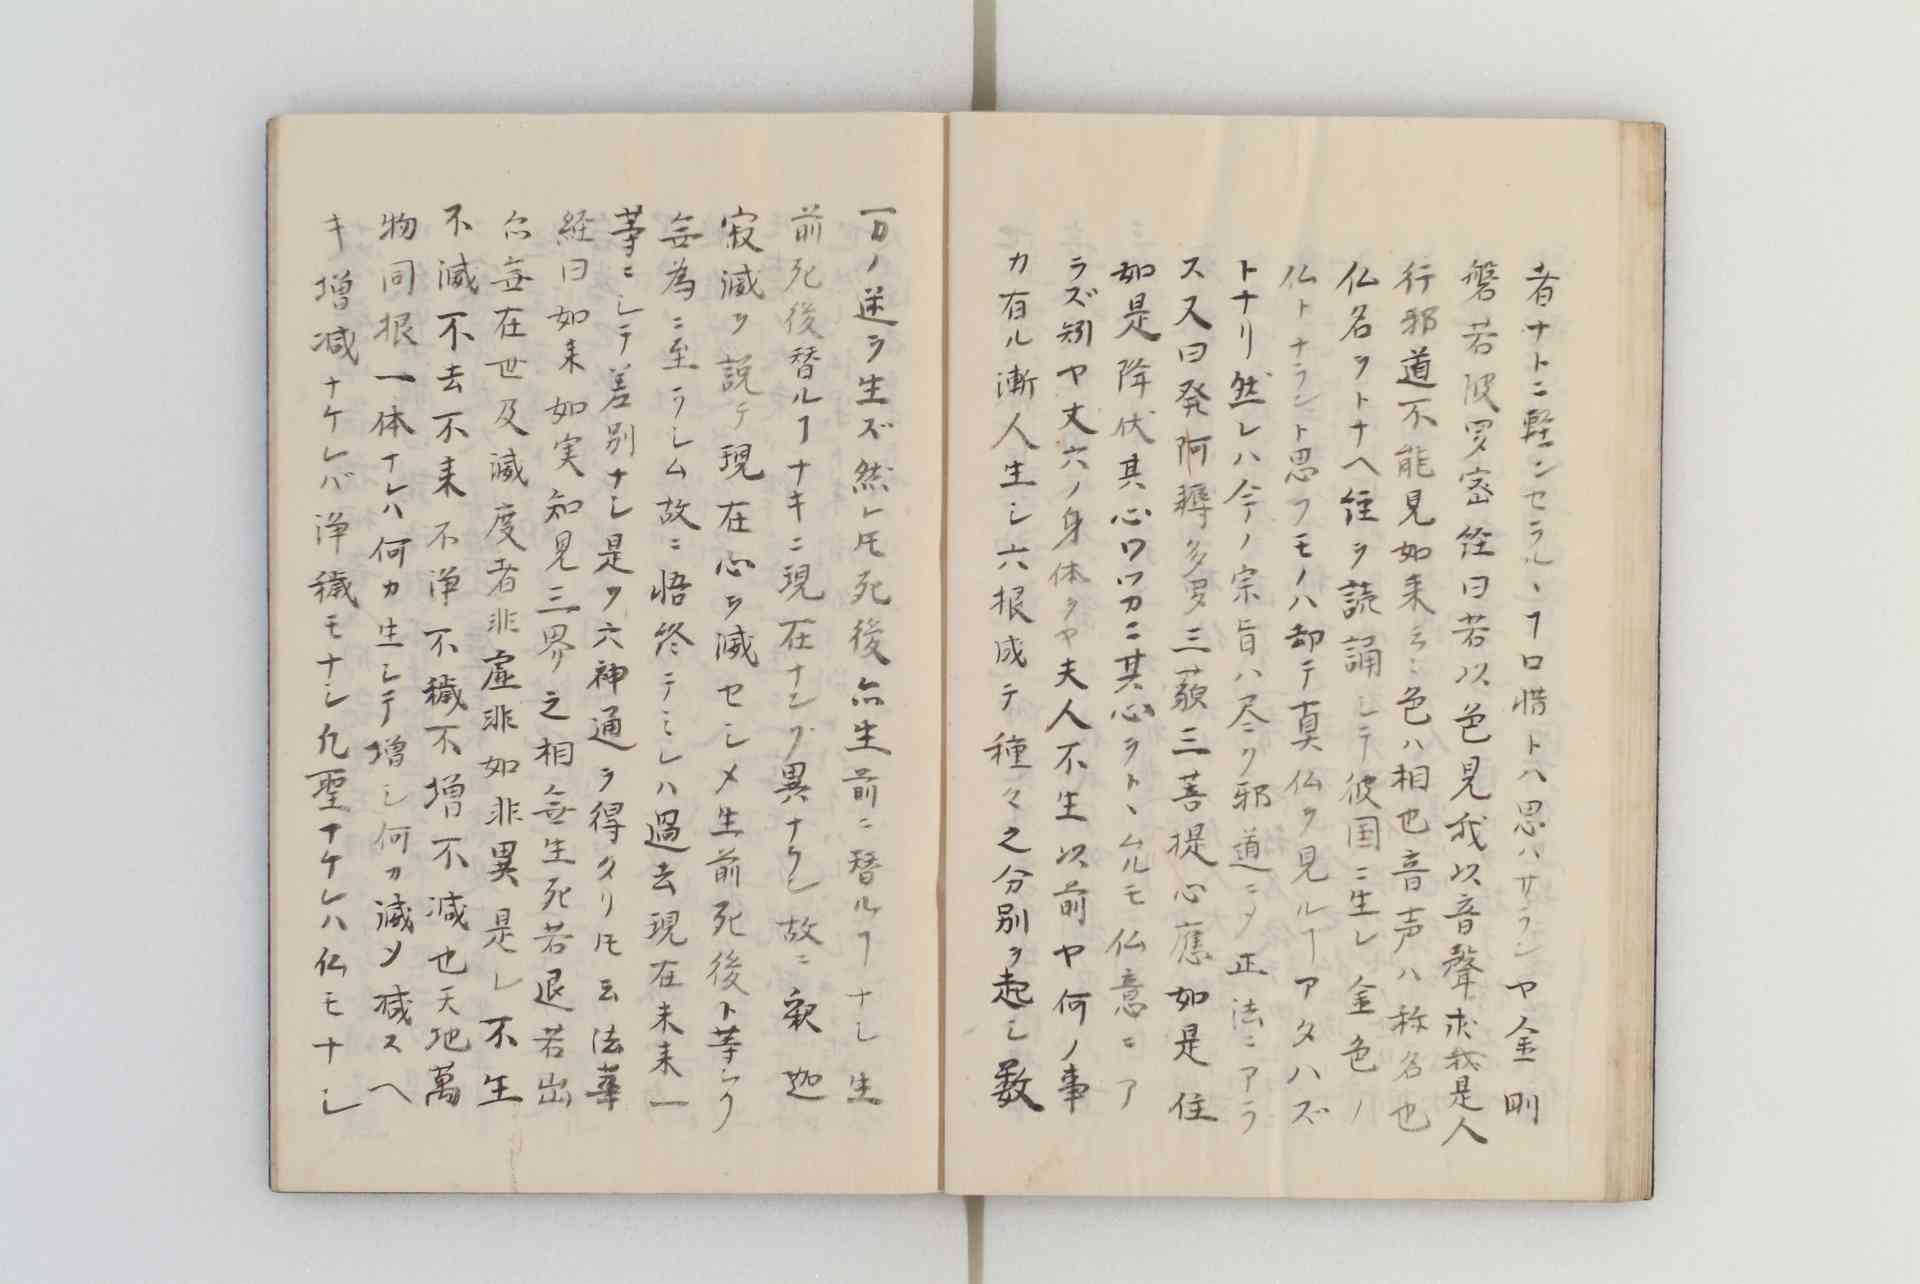 者ナトニ軽ンセラルヽヿ口惜トハ思ハサランヤ金剛
磐若波罗密経曰若以色見我以音聲求我是人
行邪道不能見如来云々色ハ相也音声ハ称名也
仏名ヲトナヘ経ヲ読誦シテ彼国ニ生レ金色ノ
仏トナラント思フモノハ却テ真仏ヲ見ルヿアタハズ
トナリ然レハ今ノ宗旨ハ尽ク邪道ニ〆正法ニアラ
ス又曰発阿耨多罗三藐三菩提心應如是住
如是降伏其心ワツカニ其心ヲトヽムルモ仏意ニア
ラズ矧ヤ丈六ノ身体ヲヤ夫人不生以前ヤ何ノ事
カ有ル漸人生シ六根成テ種々之分別ヲ起シ数
万ノ迷ヲ生ズ然レ𪜈死後尓生前ニ替ルヿナシ生
前死後替ルヿナキニ現在ナンゾ異ナラン故ニ釈迦
寂滅ヲ説テ現在心ヲ滅セシメ生前死後ト等シク
無為ニ至ラシム故ニ悟終テミレハ過去現在未来一
等ニシテ差別ナシ是ヲ六神通ヲ得タリ𪜈云法華
経曰如来如実知見三界之相無生死若退若出
尓無在世及滅度者非虚非如非異是レ不生
不滅不去不来不浄不穢不増不減也天地萬
物同根一体ナレハ何カ生シテ増シ何カ滅〆減スヘ
キ増減ナケレバ浄穢モナシ凢聖ナケレハ仏モナシ